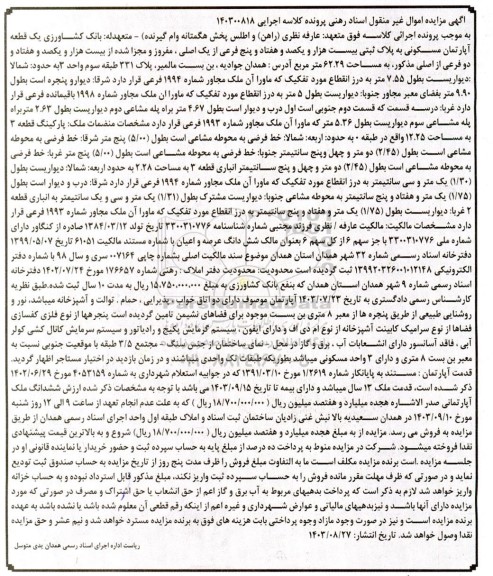 آگهی مزایده اموال غیر منقول اسناد رهنی پرونده کلاسه اجرایی ۱۴۰۳۰۰۸۱۸
به موجب پرونده اجرائی کلاسه فوق متعهد: عارفه نظری (راهن) و اطلس پخش هگمتانه وام گیرنده) - متعهدله: بانک کشاورزی یک قطعه
آپارتمان مسکونی به پلاک ثبتی بیست هزار و یکصد و هفتاد و پنج فرعی از یک اصلی ، مفروز و مجزا شده از بیست هزار و یکصد و هفتاد و
دو فرعی از اصلی مذکور، به مساحت ۶۲.۲۹ متر مربع آدرس : همدان جوادیه ، بن بست مالمیر، پلاک ۳۳۱ طبقه سوم واحد ۳به حدود: شمالا
:دیواریست بطول ۷.۵۵ متر به درز انقطاع مورد تفکیک که ماورا آن ملک مجاور شماره ۱۹۹۴ فرعی قرار دارد شرقا: دیوارو پنجره است بطول
۹.۹۰ متر بفضای معبر مجاور جنوبا: دیواریست بطول ۵ متر به درز انقطاع مورد تفکیک که ماورا آن ملک مجاور شماره ۱۹۹۸ باقیمانده فرعی قرار
دارد غربا: درسه قسمت که قسمت دوم جنوبی است اول درب و دیوار است بطول ۴.۶۷ متر براه پله مشاعی دوم دیواریست بطول ۲.۶۳ متربراه
پله مشاعی سوم دیواریست بطول ۵.۳۶ متر که ماورا آن ملک مجاور شماره ۱۹۹۳ فرعی قرار دارد مشخصات منضمات ملک: پارکینگ قطعه ۳
به مساحت ۱۲.۲۵ واقع در طبقه ۰ به حدود: اربعه: شمالا: خط فرضی به محوطه مشاعی است بطول (۵/۰۰) پنج متر شرقا: خط فرضی به محوطه
مشاعی است بطول (۲/۴۵) دو متر و چهل و پنج سانتیمتر جنوبا: خط فرضی به محوطه مشاعی است بطول (۵/۰۰) پنج متر غربا: خط فرضی
به محوطه مشاعی است بطول (۲/۴۵) دو متر و چهل و پنج سانتیمتر انباری قطعه ۳ به مساحت ۲.۲۸ به حدود اربعه: شمالا: دیواریست بطول
(۱/۳۰) یک متر و سی سانتیمتر به درز انقطاع مورد تفکیک که ماورا آن ملک مجاور شماره ۱۹۹۴ فرعی قرار دارد شرقا: درب و دیوار است بطول
(۱/۷۵) یک متر و هفتاد و پنج سانتیمتر به محوطه مشاعی جنوبا: دیواریست مشترک بطول (۱/۳۱) یک متر و سی و یک سانتیمتر به انباری قطعه
۲ غربا: دیواریست بطول (۱/۷۵) یک متر و هفتاد و پنج سانتیمتر به درز انقطاع مورد تفکیک که ماورا آن ملک مجاور شماره ۱۹۹۳ فرعی قرار
دارد مشخصات مالکیت: مالکیت عارفه / نظری فرزند مجتبی شماره شناسنامه ۳۳۲۰۳۱۰۷۷۶ تولد ۱۳۸۴/۰۳/۱۲ صادره از کنگاور دارای
شماره ملی ۳۳۲۰۳۱۰۷۷۶ با جز سهم ۶از کل سهم ۶ بعنوان مالک شش دانگ عرصه و اعیان با شماره مستند مالکیت ۶۱۰۵۱ تاریخ ۱۳۹۹/۰۵/۰۷
دفترخانه اسناد رسمی شماره ۳۲ شهر همدان استان همدان موضوع سند مالکیت اصلی بشماره چاپی ۰۰۷۱۶۴ سری و سال ۹۸ با شماره دفتر
الکترونیکی ۱۳۹۹۲۰۳۲۶۰۰۱۰۱۲۱۴۸ ثبت گردیده است محدودیت: محدودیت دفتر املاک : رهنی شماره ۱۷۶۶۵۷ مورخ ۱۴۰۲/۰۷/۲۴ دفترخانه
اسناد رسمی شماره ۹ شهر همدان استان همدان که بنفع بانک کشاورزی به مبلغ ۱۵.۷۵۰.۰۰۰.۰۰۰ ریال به مدت ۱۰ سال ثبت شده.طبق نظریه
کارشناس رسمی دادگستری به تاریخ ۱۴۰۳/۰۷/۲۳ آپارتمان موصوف دارای دواتاق خواب ، پذیرایی ، حمام . توالت و آشپزخانه میباشد، نور و
روشنایی طبیعی از طریق پنجره ها از معبر ۸ متری بن بست موجود برای فضاهای نشیمن تامین گردیده است پنجرهها از نوع فلزی کفسازی
فضاها از نوع سرامیک کابینت آشپزخانه از نوع ام دی اف و دارای ایفون، سیستم گرمایش پکیج و رادیاتور و سیستم سرمایش کانال کشی کولر
آبی ، فاقد آسانسور دارای انشعابات آب ، برق و گاز در محل ، نمای ساختمان از جنس سنگ ، مجتمع ۳/۵ طبقه با موقعیت جنوبی نسبت به
معبر بن بست ۸ متری و دارای ۳ واحد مسکونی میباشد بطوریکه طبقات تک واحدی میباشند و در زمان بازدید در اختیار مستاجر اظهار گردید.
قدمت آپارتمان : مستند به پایانکار شماره ۱/۲۶۱۹ مورخ ۱۳۹۱/۰۳/۱۰ که در جوابیه استعلام شهرداری به شماره ۴۰۵۳۱۵۹ مورخ ۱۴۰۲/۰۶/۲۹
ذکر شده است، قدمت ملک ۱۳ سال میباشد و دارای بیمه تا تاریخ ۱۴۰۳/۰۹/۱۵ می باشد با توجه به مشخصات ذکر شده ارزش ششدانگ ملک
آپارتمانی صدر الاشاره هجده میلیارد و هفتصد میلیون ریال (۱۸/۷۰۰/۰۰۰/۰۰۰ ریال ) که به علت عدم انجام تعهد از ساعت ۹ الی ۱۲ روز شنبه
مورخ ۱۴۰۳/۰۹/۱۰ در همدان سعیدیه بالا نبش غنی زادیان ساختمان ثبت اسناد و املاک طبقه اول واحد اجرای اسناد رسمی همدان از طریق
مزایده به فروش می رسد. مزایده از به مبلغ هجده میلیارد و هفتصد میلیون ریال (۱۸/۷۰۰/۰۰۰/۰۰۰ ریال) شروع و به بالاترین قیمت پیشنهادی
نقدا فروخته میشود. شرکت در مزایده منوط به پرداخت ده درصد از مبلغ پایه به حساب سپرده ثبت و حضور خریدار یا نماینده قانونی او در
جلسه مزایده .است برنده مزایده مکلف است ما به التفاوت مبلغ فروش را ظرف مدت پنج روز از تاریخ مزایده به حساب صندوق ثبت تودیع
نماید و در صورتی که ظرف مهلت مقرر مانده فروش را به حساب سپرده ثبت واریز نکند، مبلغ مذکور قابل استرداد نبوده و به حساب خزانه
واریز خواهد شد لازم به ذکر است که پرداخت بدهیهای مربوط به آب برق و گاز اعم از حق انشعاب یا حق اشتراک و مصرف در صورتی که مورد
مزایده دارای آنها باشد و نیزبدهیهای مالیاتی و عوارض شهرداری و غیره اعم از اینکه رقم قطعی آن معلوم شده باشد یا نشده باشد به عهده
برنده مزایده است و نیز در صورت وجود مازاد وجوه پرداختی بابت هزینه های فوق به برنده مزایده مسترد خواهد شد و نیم عشر و حق مزایده
نقدا وصول خواهد شد. تاریخ انتشار: ۱۴۰۳/۰۸/۲۷
ریاست اداره اجرای اسناد رسمی همدان بدی متوسل